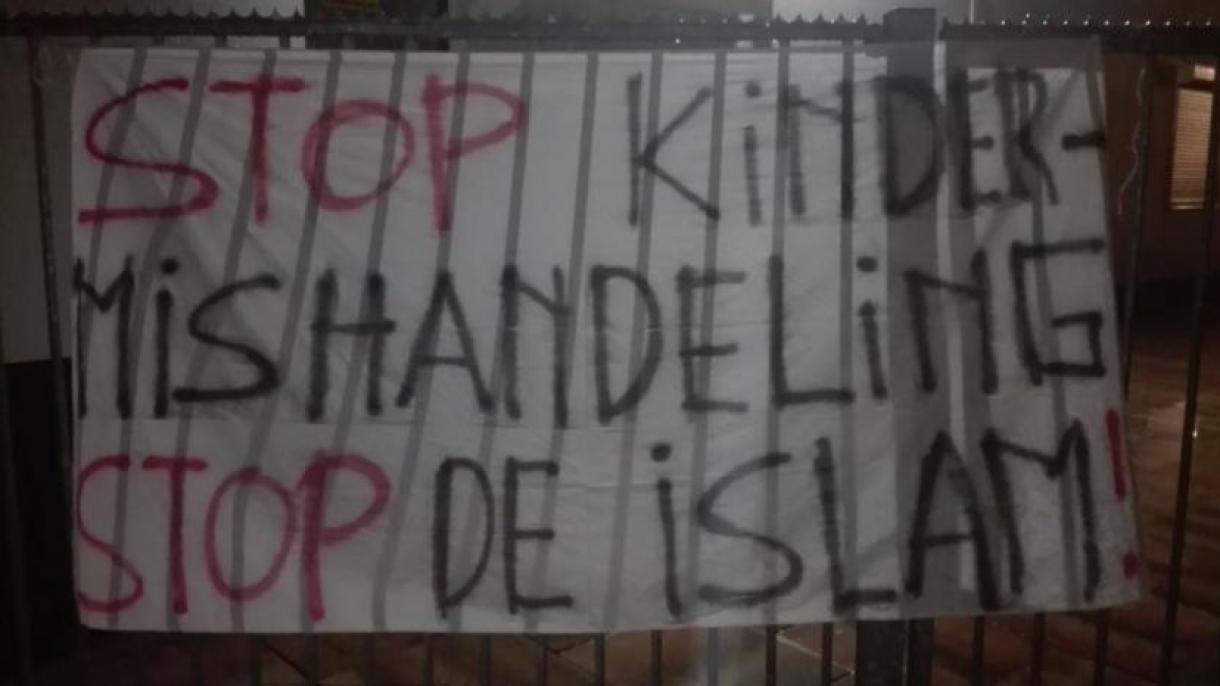 STOP KiNDER-
MiSHANDELiNG
STOP DE iSLAM!